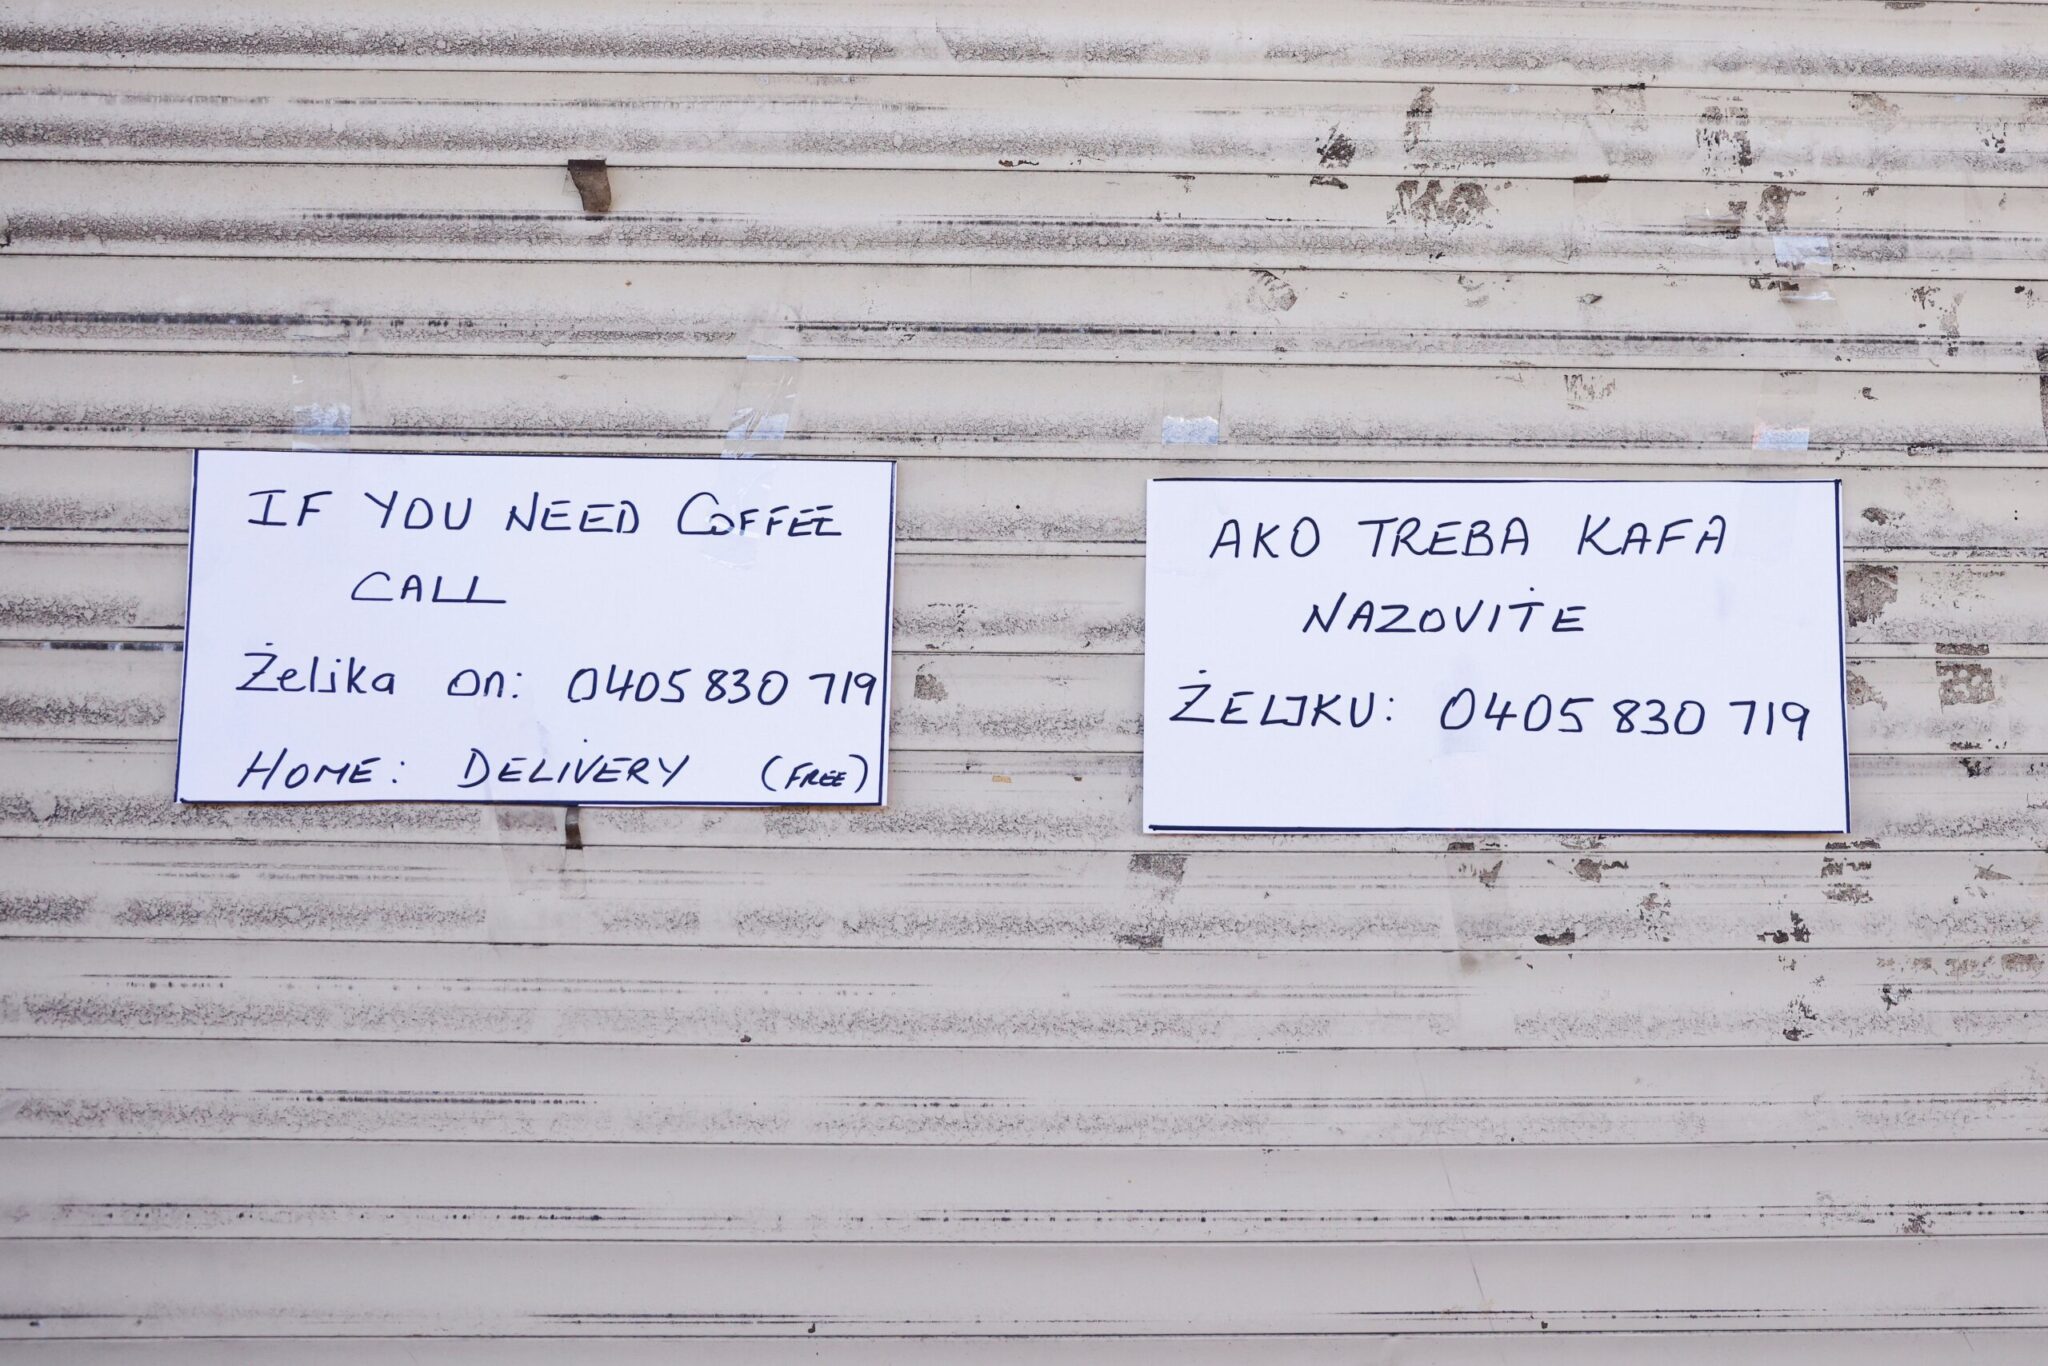 IF YOU NEED COFFEE
CALL
Željka on: 0405 830 719
HOME: DELIVERY (FREE)
AKO TREBA KAFA
NAZOVITE
ŽELJKU: 0405 830 719